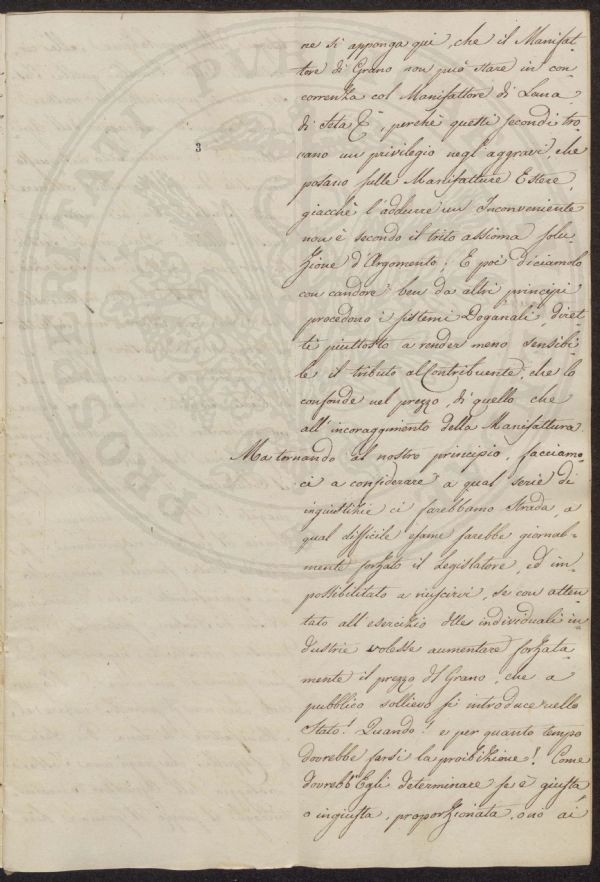 ne si apponga quì, che il Manifat-
tore di Grano non può stare in con
correnza col Manifattore di Lana,
di Seta &, perchè questi secondi tro-
vano un privilegio negl'aggravi, che
posano sulle Manifatture Estere,
giacchè l'addurre un Inconveniente
non è secondo il trito assioma solu-
zione d'Argomento; E poi diciamolo
con candore ben da altri principi
procedono i sistemi Doganali, diret-
ti piuttosto a render meno sensibi-
le il tributo al Contribuente, che lo
confonde nel prezzo, di quello che
all'incoraggimento della Manifattura.
Ma tornando al nostro principio, facciamo-
ci a considerare a qual serie di
inquistizie ci farebbamo strada, a
qual difficile esame sarebbe giornal-
mente forzato il Legislatore, ed im-
possibilitato a riuscirvi, se con atten-
tato all'esercizio dlle individuali in
dustrie volesse aumentare forzata-
mente il prezzo dl Grano, che a
pubblico sollievo si introduce nello
Stato! Quando! e per quanto tempo
dovrebbe farsi la proibizione! Come
dovrebb'Egli determinare se è giusta
o ingiusta, proporzionata, o nò ai
3
PROSPERITATI PUBL